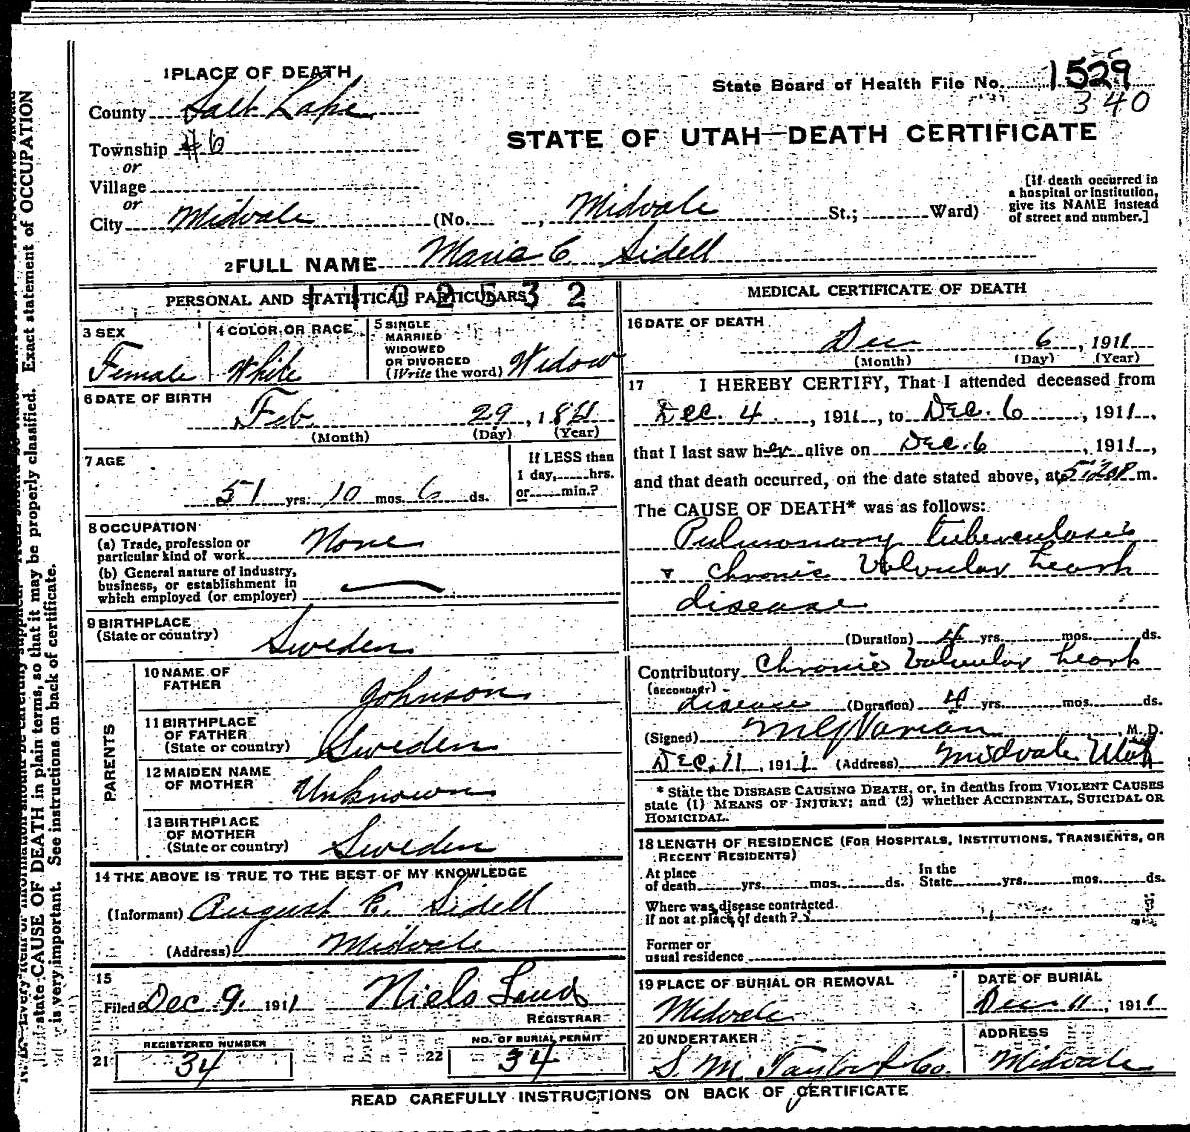 1 PLACE OF DEATH
State Board of Health File No. 1529
340
County Salt Lake
STATE OF UTAH—DEATH CERTIFICATE
Township #6
or
Village
or
City Midvale (No. , Midvale St.; Ward)
[If death occurred in a hospital or institution, give its NAME instead of street and number.]
2 FULL NAME Maria C Sidell
PERSONAL AND STATISTICAL PARTICULARS
1102532
3 SEX
Female
4 COLOR OR RACE
White
5 SINGLE
MARRIED
WIDOWED
OR DIVORCED
(Write the word) Widow
6 DATE OF BIRTH
Feb. 29, 18
(Month) (Day) (Year)
7 AGE
51 yrs. 10 mos. 6 ds.
If LESS than
1 day, hrs.
or min.?
8 OCCUPATION
(a) Trade, profession or
particular kind of work None
(b) General nature of industry,
business, or establishment in
which employed (or employer)
9 BIRTHPLACE
(State or country) Sweden
PARENTS
10 NAME OF
FATHER Johnson
11 BIRTHPLACE
OF FATHER
(State or country) Sweden
12 MAIDEN NAME
OF MOTHER Unknown
13 BIRTHPLACE
OF MOTHER
(State or country) Sweden
14 THE ABOVE IS TRUE TO THE BEST OF MY KNOWLEDGE
(Informant) August E. Sidell
(Address) Midvale
15
Filed Dec 9. 1911 Niels Lund
REGISTRAR
21 REGISTERED NUMBER
34
22 NO. OF BURIAL PERMIT
34
MEDICAL CERTIFICATE OF DEATH
16 DATE OF DEATH
Dec 6, 1911
(Month) (Day) (Year)
17 I HEREBY CERTIFY, That I attended deceased from
Dec. 4, 1911, to Dec. 6, 1911,
that I last saw her alive on Dec. 6, 1911,
and that death occurred, on the date stated above, at 5:20P m.
The CAUSE OF DEATH* was as follows:
Pulmonary tuberculosis
+ chronic Valvular heart
disease
(Duration) 4 yrs. mos. ds.
Contributory Chronic Valvular heart
(SECONDARY)
disease (Duration) 4 yrs. mos. ds.
(Signed) M.D.
Dec. 11, 1911 (Address) Midvale Utah
* State the DISEASE CAUSING DEATH, or, in deaths from VIOLENT CAUSES
state (1) MEANS OF INJURY; and (2) whether ACCIDENTAL, SUICIDAL OR
HOMICIDAL.
18 LENGTH OF RESIDENCE (FOR HOSPITALS, INSTITUTIONS, TRANSIENTS, OR
RECENT RESIDENTS)
At place
of death yrs. mos. ds. In the
State yrs. mos. ds.
Where was disease contracted
if not at place of death?
Former or
usual residence
19 PLACE OF BURIAL OR REMOVAL
Midvale
DATE OF BURIAL
Dec 11 1911
20 UNDERTAKER
S. M. Taylor & Co.
ADDRESS
Midvale
READ CAREFULLY INSTRUCTIONS ON BACK OF CERTIFICATE
state CAUSE OF DEATH in plain terms, so that it may be properly classified. Exact statement of OCCUPATION
is very important. See instructions on back of certificate.